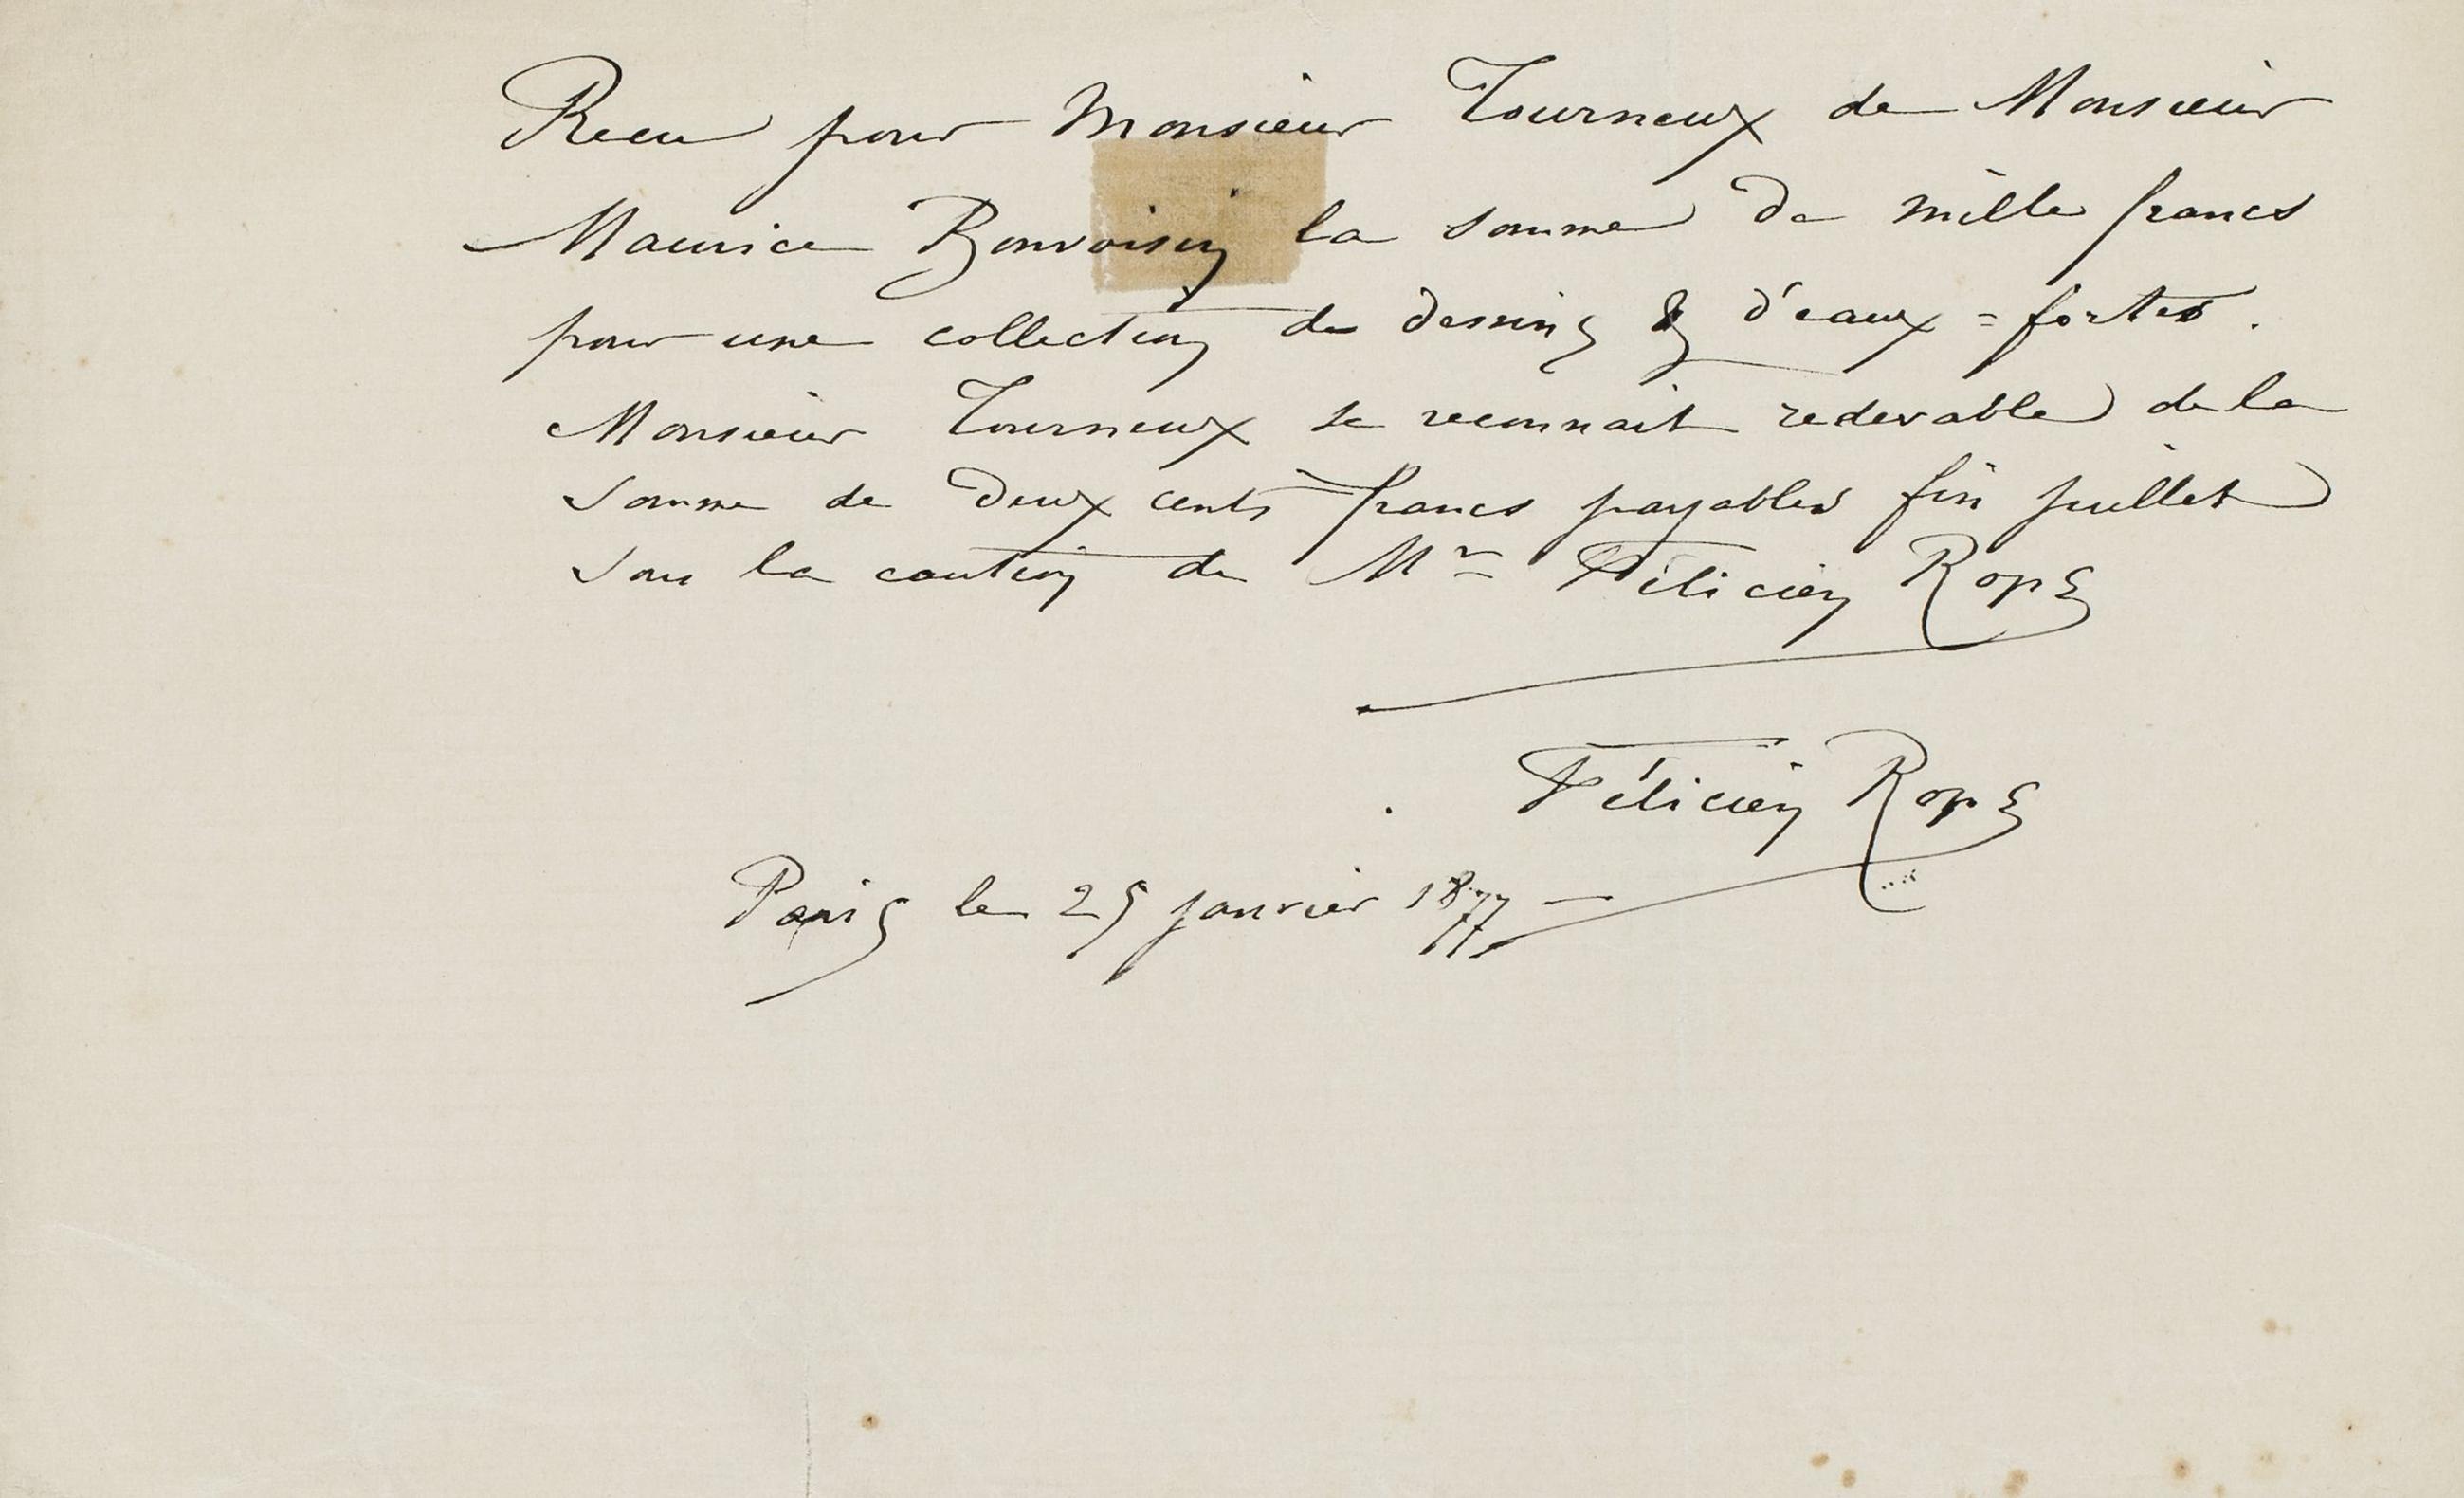 Recu pour Monsieur Tourneux de Monsieur
Maurice Bonvoisin la somme de mille francs
pour une collection de dessins & d'eaux=fortes.
Monsieur Tourneux se reconnait redevable de la
somme de deux cents francs payables fin juillet
sous la caution de Mr Félicien Rops
Félicien Rops
Paris le 25 janvier 1877 —